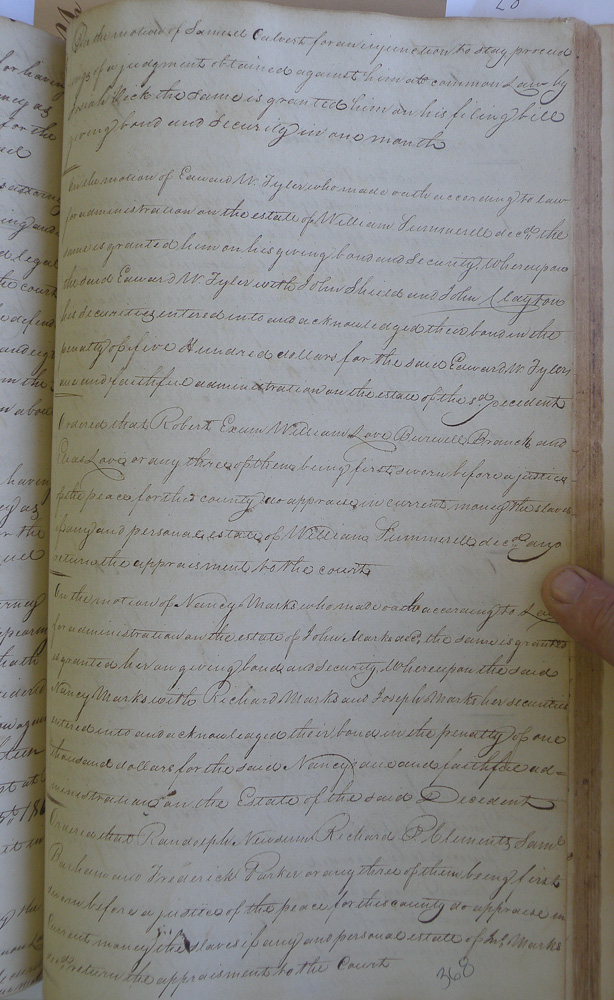 On the motion of Samuel Calvert for an injunction to stay proceed
ings of a judgment obtained against him at common Law by
the same is granted him on his filing bill
giving bond and security in one month
On the motion of Edward W. Tyler who made oath according to law
for administration on the estate of William Summerell decd. the
same is granted him on his giving bond and security Whereupon
the said Edward W. Tyler with John Shield and John Clayton
his securities entered into and acknowledged their bond in the
penalty of five Hundred dollars for the said Edward W. Tylers
due and faithful administration on the estate of the sd. Decedent
Ordered that Robert Exum William Love Burwell Branch and
Love or any three of them being first sworn before a justice
of the peace for this county do appraise in current money the slaves
if any and personal estate of William Summerell decd. and
return the appraisment to the court
On the motion of Nancy Marks who made oath according to Law
for administration on the estate of John Marks decd. the same is granted
is granted her on giving bond and security Whereupon the said
Nancy Marks with Richard Marks and Joseph Marks her securities
entered into and acknowledged their bond in the penalty of one
thousand dollars for the said Nancys due and faithful ad=
ministration on the Estate of the said Decedent
Ordered that Randolph Newsum Richard P. Clements Saml.
Parham and Frederick Parker or any three of them being first
sworn before a justice of the peace for this county do appraise in
current money the slaves if any and personal estate of Jno. Marks
and return the appraisment to the Court